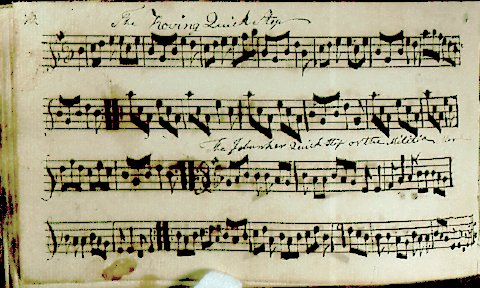 The Roving Quick Step
The Quick Step or the Militia